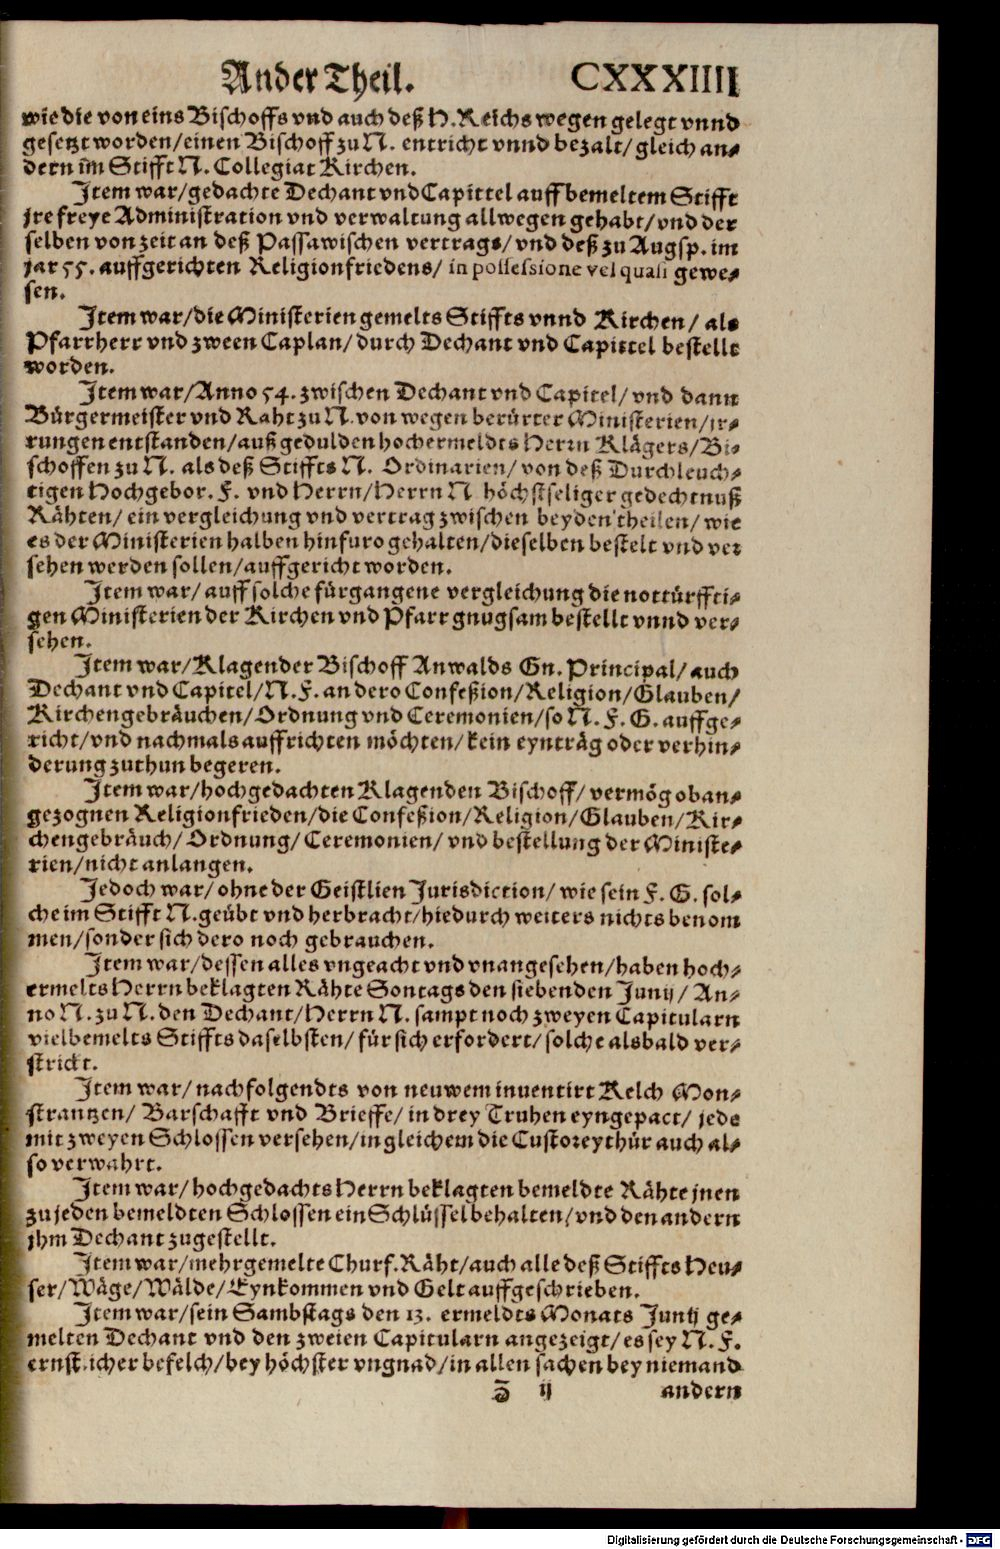 Ander Theil. CXXXIIII
wie die von eins Bischoffs vnd auch deß H. Reichs wegen gelegt vnnd
gesetzt worden/einen Bischoff zu N. entricht vnnd bezalt/ gleich an-
dern im Stifft N. Collegiat Kirchen.
Item war/gedachte Dechant vnd Capittel auff bemeltem Stifft
jre freye Administration vnd verwaltung allwegen gehabt/vnd der
selben von zeit an deß Passawischen vertrags/ vnd deß zu Augsp. im
jar 55. auffgerichten Religionfriedens/ in possessione vel quasi gewe-
sen.
Item war/die Ministerien gemelts Stiffts vnnd Kirchen/ als
Pfarrherr vnd zween Caplan/ durch Dechant vnd Capittel bestellt
worden.
Item war/Anno 54. zwischen Dechant vnd Capitel/ vnd dann
Bürgermeister vnd Raht zu N. von wegen berürter Ministerien/ jr-
rungen entstanden/auß gedulden hochermeldts Herrn Klägers/ Bi-
schoffen zu N. als deß Stiffts N. Ordinarien/ von deß Durchleuch-
tigen Hochgebor. F. vnd Herrn/Herrn N höchstseliger gedechtnuß
Rähten/ ein vergleichung vnd vertrag zwischen beyden theilen/ wie
es der Ministerien halben hinfuro gehalten/dieselben bestelt vnd ver
sehen werden sollen/auffgericht worden.
Item war/ auff solche fürgangene vergleichung die nottürffti-
gen Ministerien der Kirchen vnd Pfarr gnugsam bestellt vnnd ver-
sehen.
Item war/Klagender Bischoff Anwalds Gn. Principal/ auch
Dechant vnd Capitel/N. F. an dero Confeßion/Religion/Glauben/
Kirchengebräuchen/Ordnung vnd Ceremonien/so N. F. G. auffge-
richt/vnd nachmals auffrichten möchten/ kein eynträg oder verhin-
derung zuthun begeren.
Item war/hochgedachten Klagenden Bischoff/ vermög oban-
gezognen Religionfrieden/die Confeßion/Religion/Glauben/Kir-
chengebräuch/ Ordnung/ Ceremonien/ vnd bestellung der Ministe-
rien/nicht anlangen.
Jedoch war/ ohne der Geistlien Jurisdiction/ wie sein F. G. sol-
che im Stifft N. geübt vnd herbracht/hiedurch weiters nichts benom
men/sonder sich dero noch gebrauchen.
Item war/dessen alles vngeacht vnd vnangesehen/haben hoch-
ermelts Herrn beklagten Rähte Sontags den siebenden Junij/ An-
no N. zu N. den Dechant/Herrn N. sampt noch zweyen Capitularn
vielbemelts Stiffts daselbsten/ für sich erfordert/ solche alsbald ver-
strickt.
Item war/ nachfolgendts von neuwem inuentirt Kelch Mon-
strantzen/ Barschafft vnd Brieffe/ in drey Truhen eyngepact/ jede
mit zweyen Schlossen versehen/in gleichem die Custorey thür auch al-
so verwahrt.
Item war/hochgedachts Herrn beklagten bemeldte Rähte jnen
zu jeden bemeldten Schlossen ein Schlüssel behalten/vnd den andern
jhm Dechant zugestellt.
Item war/mehrgemelte Churf. Räht/auch alle deß Stiffts Heu-
ser/Wäge/Wälde/Eynkommen vnd Gelt auffgeschrieben.
Item war/sein Sambstags den 13. ermeldts Monats Junij ge-
melten Dechant vnd den zweien Capitularn angezeigt/ es sey N. F.
ernstlicher befelch/bey höchster vngnad/in allen sachen bey niemand
Z ij andern
Digitalisierung gefördert durch die Deutsche Forschungsgemeinschaft - DFG